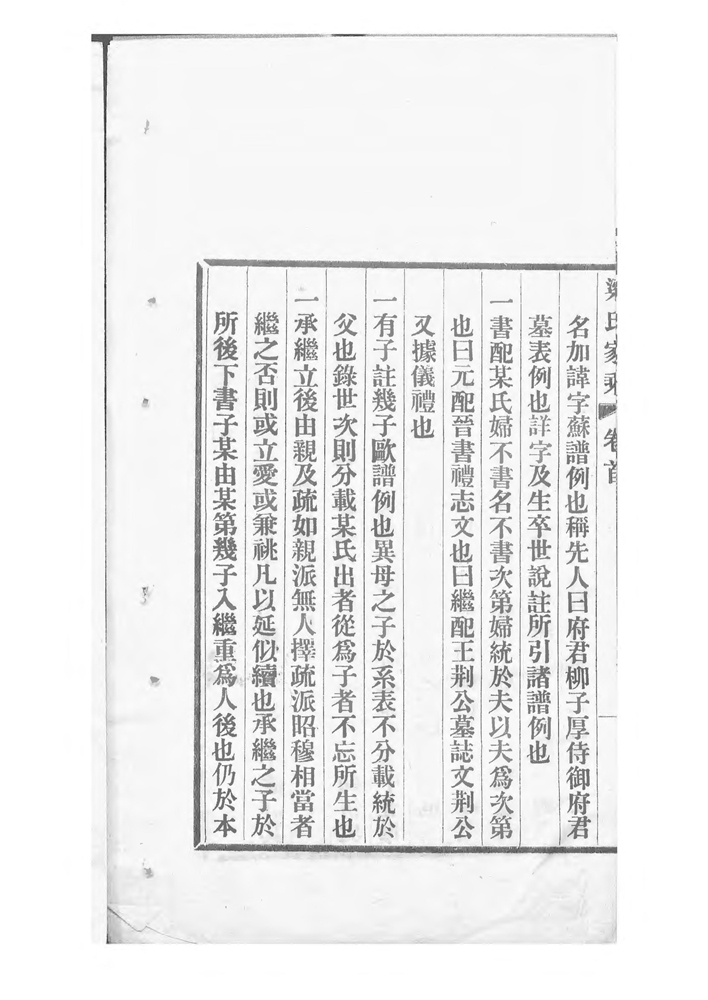 梁氏家乘 卷首
名加諱字蘇譜例也稱先人曰府君柳子厚侍御府君
墓表例也詳字及生卒世說註所引諸譜例也
一書配某氏婦不書名不書次第婦統於夫以夫爲次第
也曰元配晉書禮志文也曰繼配王荆公墓誌文荆公
又據儀禮也
一有子註幾子歐譜例也異母之子於系表不分載統於
父也錄世次則分載某氏出者從爲子者不忘所生也
一承繼立後由親及疏如親派無人擇疏派昭穆相當者
繼之否則或立愛或兼祧凡以延似續也承繼之子於
所後下書子某由某第幾子入繼重爲人後也仍於本